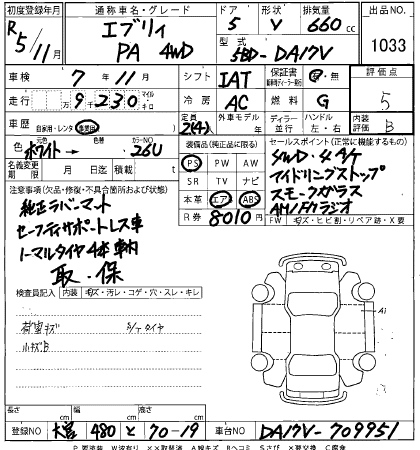 初度登録年月 通称車名・グレード ドア 形状 排気量 出品NO.
R5/11月 エブリィ PA 4WD 5 V 660cc 1033
型式 5BD-DA17V
車検 7年11月 シフト IAT 保証書 有・無 評価点
走行 9千230 マイル キロ 冷房 AC 燃料 G 5
車歴 自家用・レンタ 事業用 定員 2(4)人 外車モデル 年 ディーラー 並行 ハンドル 左・右 内装評価 B
色 ホワイト → 色替 カラーNO 26U 装備品(純正品に限る) セールスポイント(正常に機能するもの)
名義変更期限 月 日 積載 t PS PW AW 4WD.4A/T
注意事項(欠品・修復・不具合箇所および状態) SR TV ナビ アイドリングストップ
純正ラバーマット 本革 エア ABS スモークガラス
セーフティサポートレス車 R券 8010円 AM/FMラジオ
ノーマルタイヤ4本車内 FW キズ・ヒビ割・リペア跡・X要
取・保
検査員記入 内装 キズ・汚レ・コゲ・穴・スレ・キレ
荷室キズ S/Tタイヤ
小キズB
A1
長さ cm 幅 cm 高さ cm
登録NO 大宮 480 と 70-19 車台NO DA17V-709951